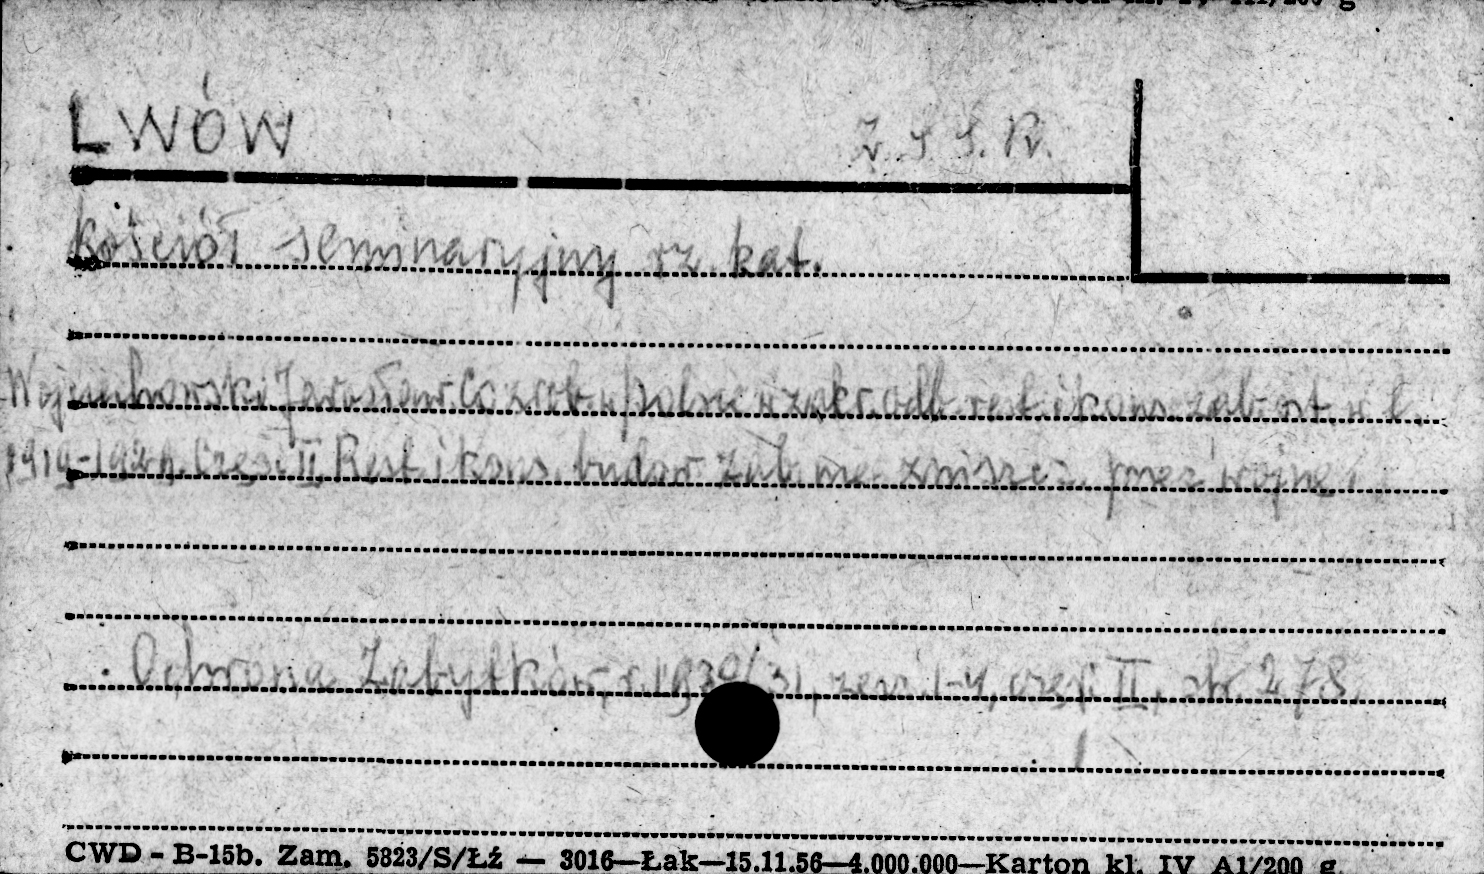 LWÓW
Z.S.S.R.
Kościół seminaryjny rz. kat.
Wojciechowski Jarosław. Co zrob. w Polsce w zakr. odb. rest. i kons. zab. szt. w l.
1919-1929. Część II. Rest. i kons. budow. zab. nie zniszcz. przez wojnę.
Ochrona Zabytków, r. 1930/31, zesz. 1-4, część II, str. 278.
CWD - B-15b. Zam. 5823/S/Łź — 3016—Łak—15.11.56—4.000.000—Karton kl. IV A1/200 g